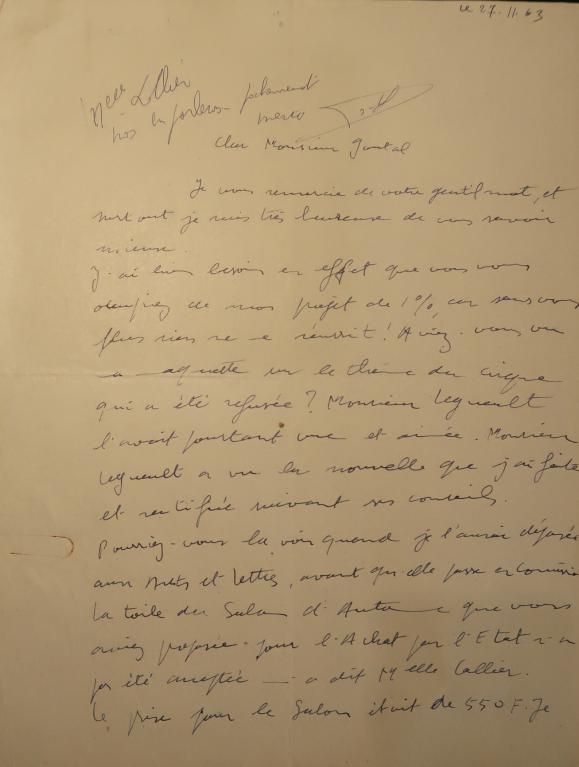 le 27.11.63
Melle Lallier
nous en parlerons
Cher Monsieur Goutal
Je vous remercie de votre gentil mot, et
surtout je suis très heureuse de vous savoir
mieux.
J'ai bien besoin en effet que vous vous
occupiez de mon projet de 1%, car sans vous
plus rien ne me réussit! Aviez-vous vu
ma maquette sur le thème du cirque
qui a été refusée? Monsieur Legueult
l'avait pourtant vue et aimée. Monsieur
Legueult a vu la nouvelle que j'ai faite
et rectifiée suivant ses conseils.
Pourriez-vous la voir quand je l'aurai déposée
aux Arts et Lettres, avant qu'elle passe en Commission
La toile du Salon d'Automne que vous
aviez proposée pour l'Achat par l'Etat n'a
pas été acceptée — m'a dit Melle Lallier.
Le prix pour le Salon était de 550 F. Je